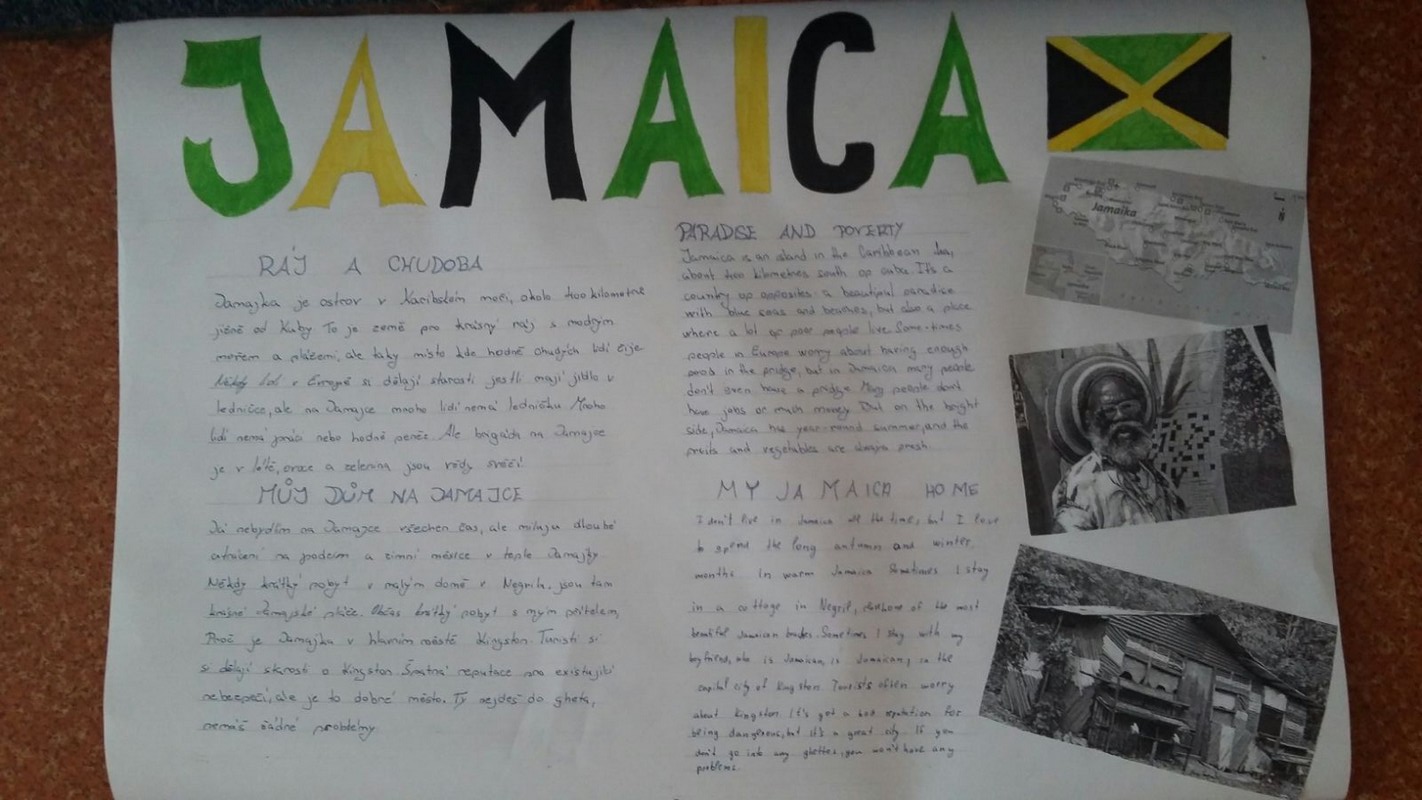 JAMAICA
RÁJ A CHUDOBA
Jamajka je ostrov v Karibském moři, okolo 400 kilometrů
jižně od Kuby To je země pro krásný ráj s modrým
mořem a plážemi, ale taky místo kde hodně chudých lidí žije
Někdy lidi v Evropě si dělají starosti jestli mají jídlo v
ledničce, ale na Jamajce mnoho lidí nemá ledničku Mnoho
lidí nemá práci nebo hodně peněz. Ale brigáda na Jamajce
je v létě, ovoce a zelenina jsou vždy svěží!
MŮJ DŮM NA JAMAJCE
Já nebydlím na Jamajce všechen čas, ale miluju dlouhé
na podzim a zimní měsíce v teple Jamajky
Někdy krátký pobyt v malým domě v Negrilu. jsou tam
krásné Jamajské pláže. Občas krátký pobyt s mým přítelem,
Proč je Jamajka v hlavním městě Kingston. Turisti si
si dělají starosti o Kingston. Špatná reputace pro existující
nebezpečí, ale je to dobré město. Ty nejdeš do gheta,
nemáš žádné problémy
PARADISE AND POVERTY
Jamaica is an island in the Caribbean Sea,
about 400 kilometres south of Cuba. It's a
country of opposites: a beautiful paradise
with blue seas and beaches, but also a place
where a lot of poor people live. Some-times
people in Europe worry about having enough
food in the fridge, but in Jamaica many people
don't even have a fridge Many people don't
have jobs or much money. But on the bright
side, Jamaica has year-round summer, and the
fruits and vegetables are always fresh.
MY JAMAICA HOME
I don't live in Jamaica all the time, but I love
to spend the long autumn and winter
months in warm Jamaica Sometimes I stay
in a cottage in Negril, of the most
beautiful Jamaican Sometimes I stay with my
boyfriend, who is Jamaican, is Jamaican, in the
capital city of Kingston. Tourists often worry
about Kingston. It's got a bad reputation for
being dangerous, but it's a great city. If you
don't go into any ghettos, you won't have any
problems.
Jamaika